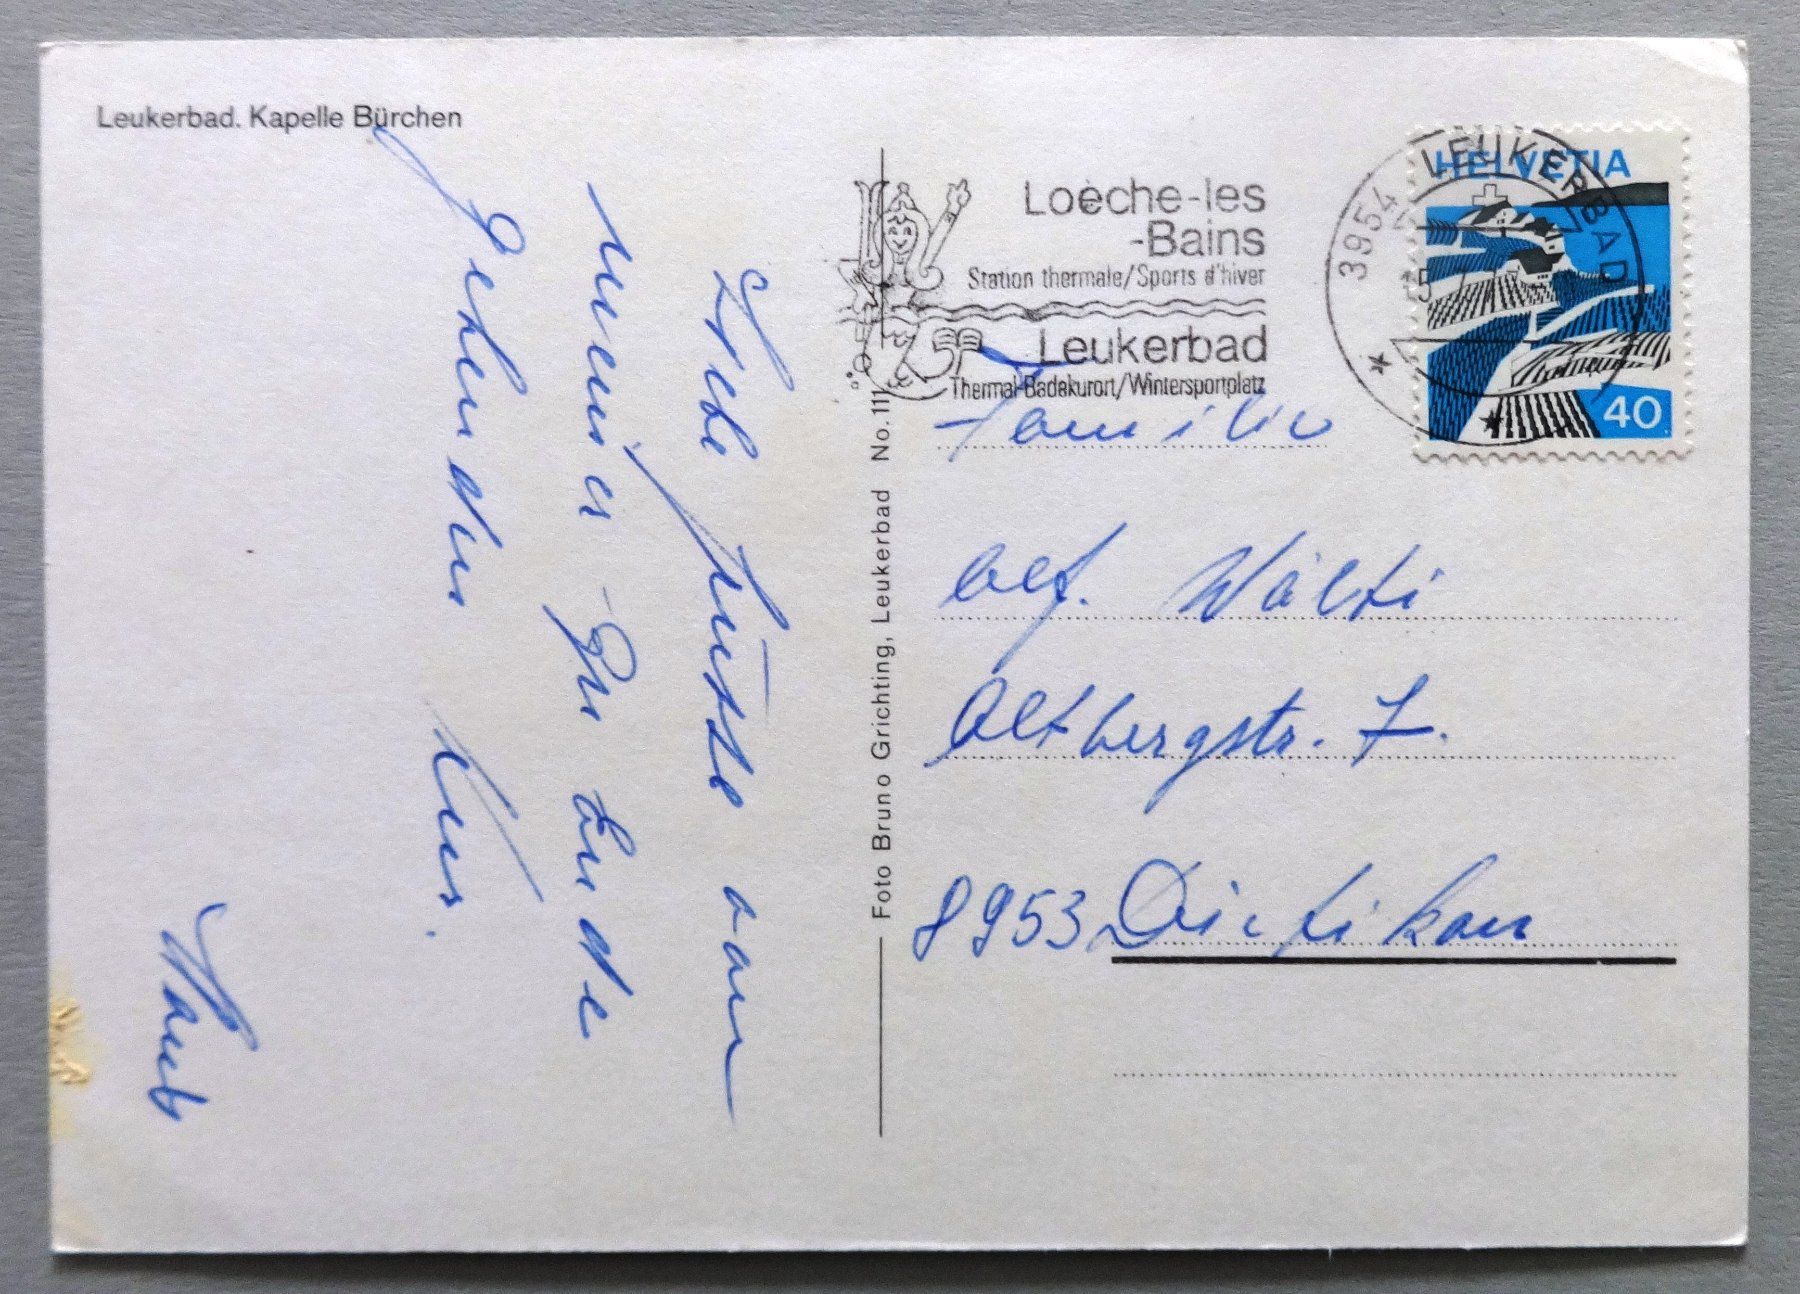 Leukerbad. Kapelle Bürchen
Liebe Grüsse von
meiner
Gehen der Kur.
Foto Bruno Grichting, Leukerbad No. 111
Loèche-les
-Bains
Station thermale/Sports d'hiver
Leukerbad
Thermal-Badekurort/Wintersportplatz
3954 LEUKERBAD
HELVETIA
40
Familie
Alf. Wälti
Altbergstr. 7.
8953 Dietikon